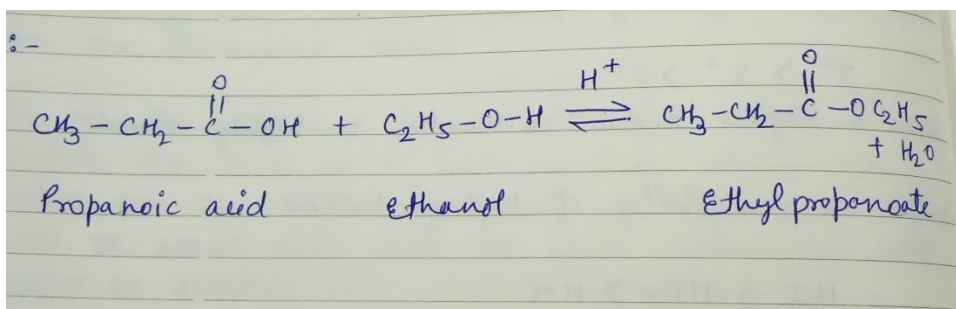 :-
O O
|| H⁺ ||
CH₃ – CH₂ – C – OH + C₂H₅ – O – H ⇌ CH₃ – CH₂ – C – OC₂H₅
+ H₂O
Propanoic acid ethanol Ethyl propanoate